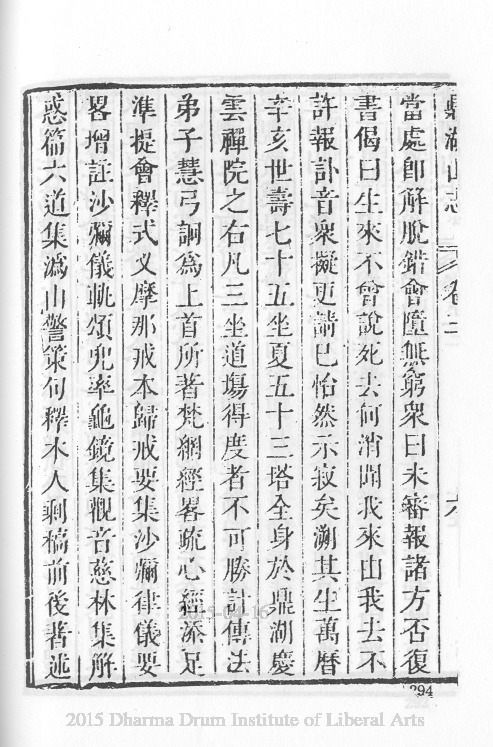 鼎湖山志 卷二 六
當處卽解脫錯會墮無窮衆曰未審報諸方否復
書偈曰生來不曾說死去何消聞我來由我去不
許報訃音衆擬更請已怡然示寂矣溯其生萬曆
辛亥世壽七十五坐夏五十三塔全身於鼎湖慶
雲禪院之右凡三坐道場得度者不可勝計傳法
弟子慧弓詷為上首所著梵網經畧疏心經添足
準提會釋式义摩那戒本歸戒要集沙彌律儀要
畧增註沙彌儀軌頌兜率龜鏡集觀音慈林集解
惑篇六道集溈山警策句釋木人剩稿前後著述
294
2015-04-16
2015 Dharma Drum Institute of Liberal Arts